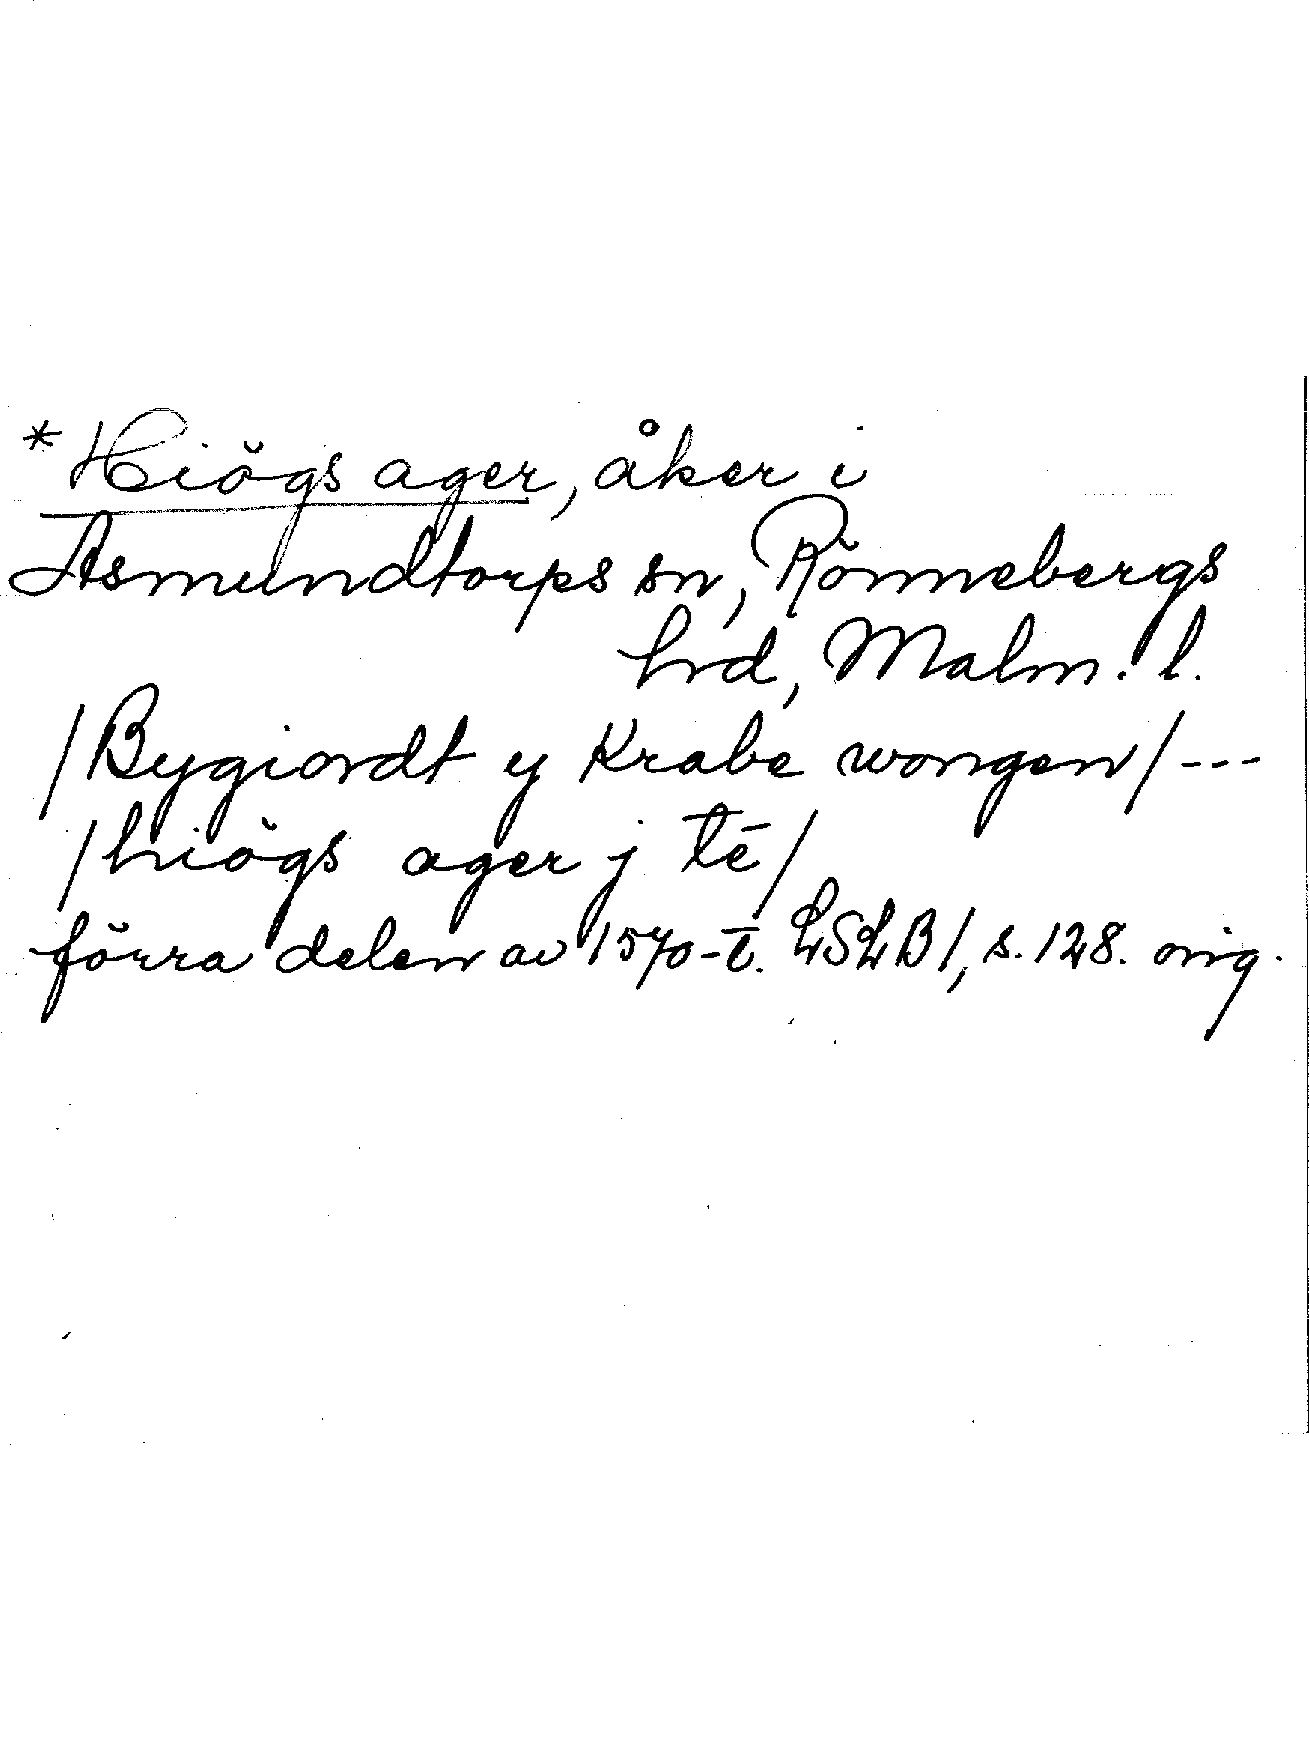 *Hiögs ager, åker i
Asmundtorps sn, Rönnebergs
hrd, Malm. l.
/Bygiordt y Krabe wongen/ ---
/hiögs ager j tē/
förra delen av 1570-t. LSLB1, s. 128. orig.